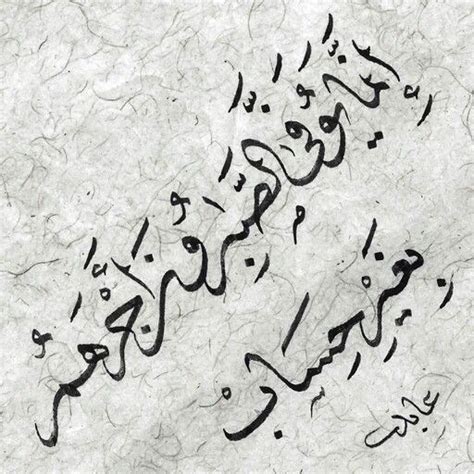 إِنَّمَا يُوَفَّى الصَّابِرُونَ أَجْرَهُمْ
بِغَيْرِ حِسَابٍ